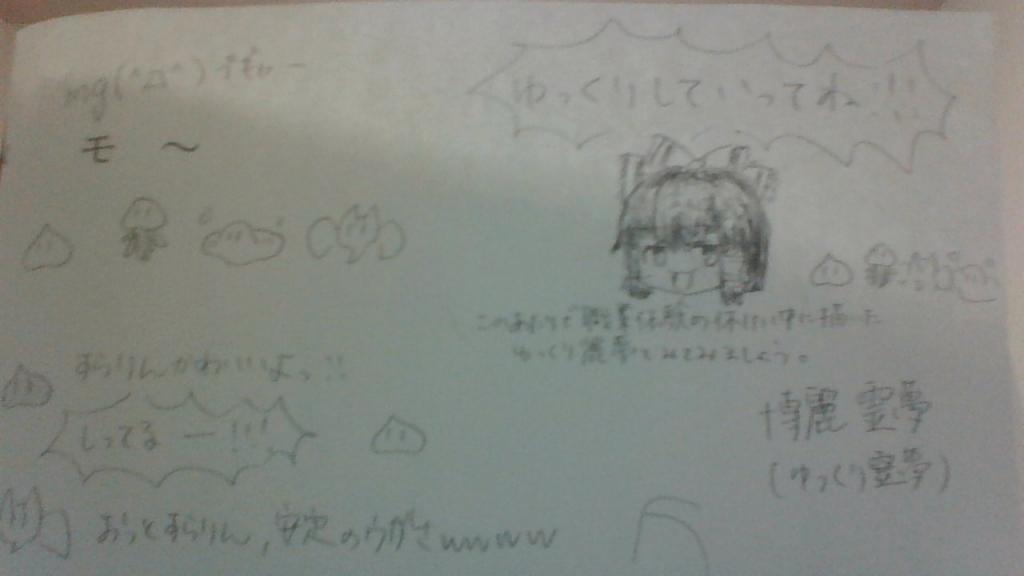 mg(^Д^)
モ ～
ゆっくりしていってね!!!
このあたりで職業体験の休けい中に描いた
ゆっくり霊夢をみてみましょう。
すらりんかわいいよっ!!
しってるー!!!
博麗 霊夢
(ゆっくり霊夢)
おっとすらりん,安定のウザさwwww